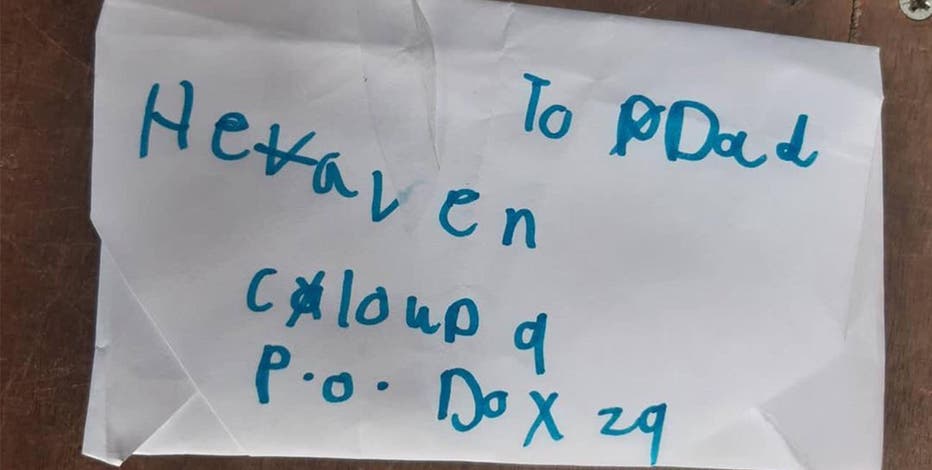 To Dad
Heaven
Cloud 9
P.O. Box 29